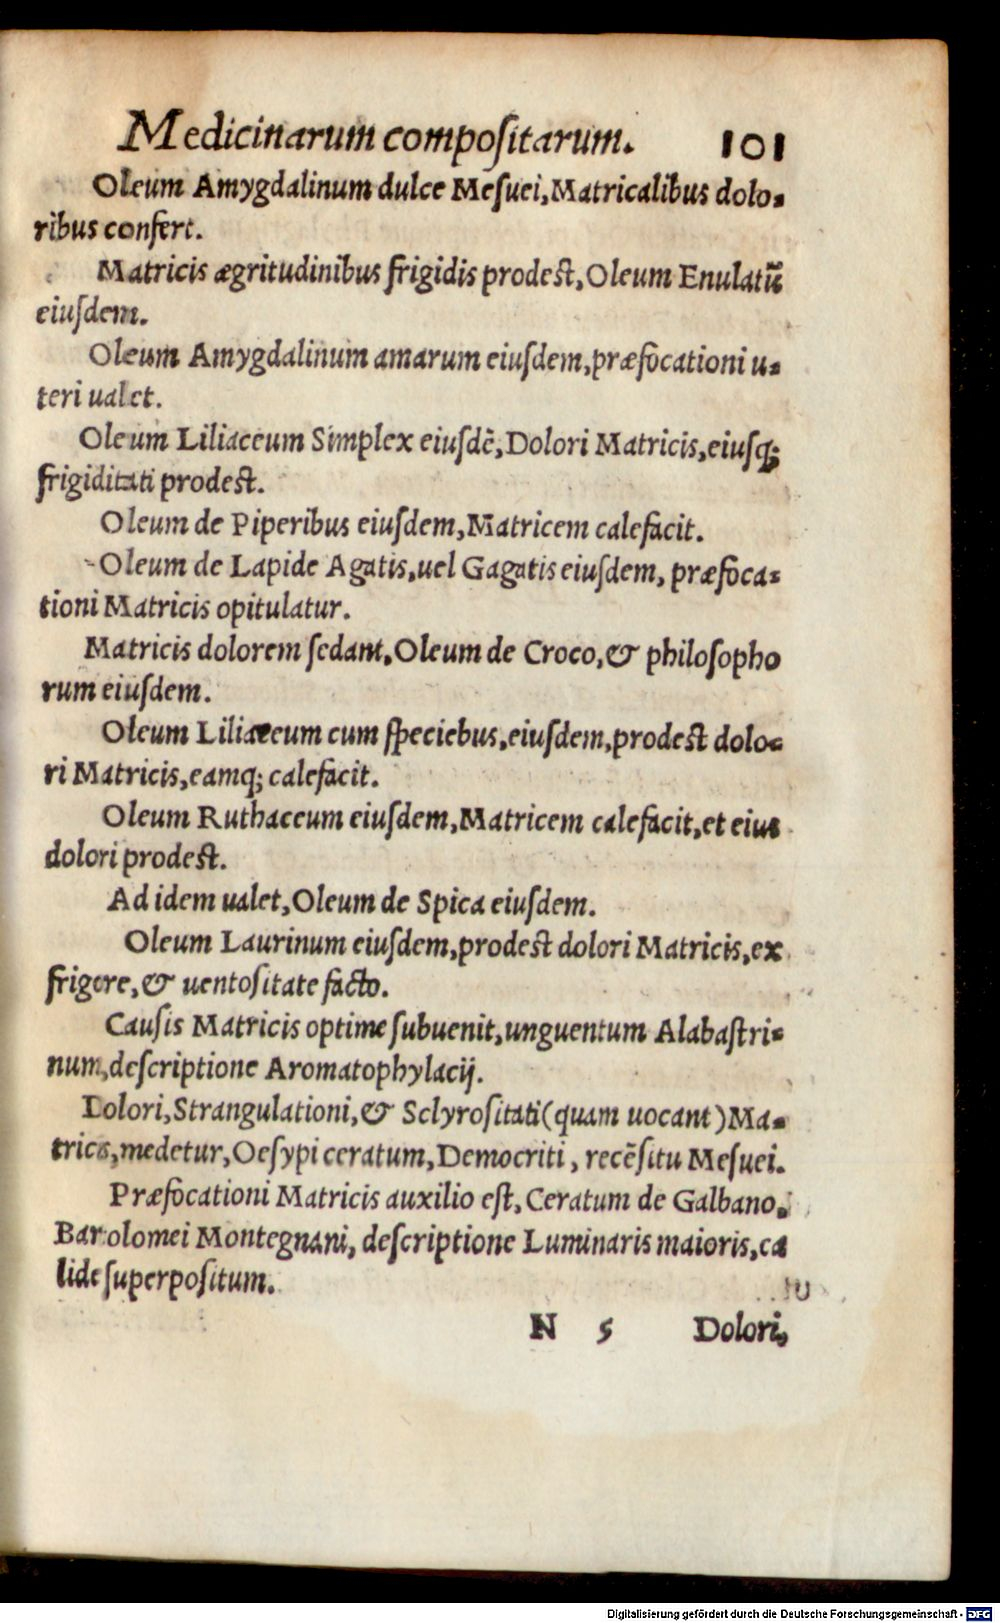 Medicinarum compoſitarum. 101
Oleum Amygdalinum dulce Meſuei, Matricalibus dolo-
ribus confert.
Matricis ægritudinibus frigidis prodeſt, Oleum Enulatū
eiuſdem.
Oleum Amygdalinum amarum eiuſdem, præfocationi u-
teri ualet.
Oleum Liliaceum Simplex eiuſdē, Dolori Matricis, eiusq́;
frigiditati prodeſt.
Oleum de Piperibus eiuſdem, Matricem calefacit.
Oleum de Lapide Agatis, uel Gagatis eiuſdem, præfoca-
tioni Matricis opitulatur.
Matricis dolorem ſedant, Oleum de Croco, & philoſopho
rum eiuſdem.
Oleum Liliaceum cum ſpeciebus, eiuſdem, prodeſt dolo-
ri Matricis, eamq; calefacit.
Oleum Ruthaceum eiuſdem, Matricem calefacit, et eius
dolori prodeſt.
Ad idem ualet, Oleum de Spica eiuſdem.
Oleum Laurinum eiuſdem, prodeſt dolori Matricis, ex
frigore, & uentoſitate facto.
Cauſis Matricis optime ſubuenit, unguentum Alabaſtri-
num, deſcriptione Aromatophylacij.
Dolori, Strangulationi, & Sclyroſitati (quam uocant) Ma-
trics, medetur, Oeſypi ceratum, Democriti, recēſitu Meſuei.
Præfocationi Matricis auxilio eſt, Ceratum de Galbano,
Bartolomei Montegnani, deſcriptione Luminaris maioris, ca
lide ſuperpoſitum.
N 5 Dolori,
Digitalisierung gefördert durch die Deutsche Forschungsgemeinschaft - DFG